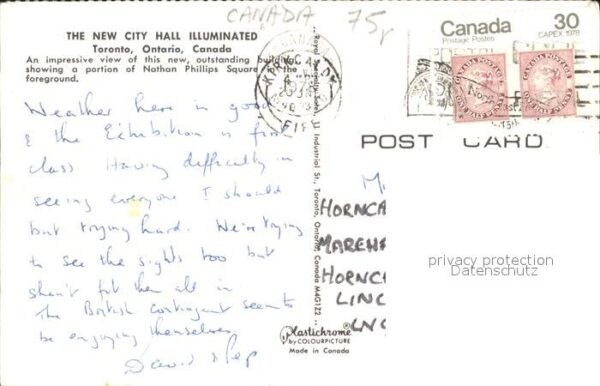 CANADA 75
THE NEW CITY HALL ILLUMINATED
Toronto, Ontario, Canada
An impressive view of this new, outstanding building
showing a portion of Nathan Phillips Square in the
foreground.
Weather here is good
& the Exhibition is first
class. Having difficulty in
seeing everyone I should
but trying hard. We're trying
to see the sights too but
shan't fit them all in.
The British Contingent seem to
be enjoying themselves
David
Plastichrome®
by COLOURPICTURE
Made in Canada
Industrial St., Toronto, Ontario, Canada M4G1Z2
CANADA
Canada 30
Postage Postes
CAPEX 1978
POST CARD
HORNCA
MAREH
HORNCA
LINC
LN
privacy protection
Datenschutz